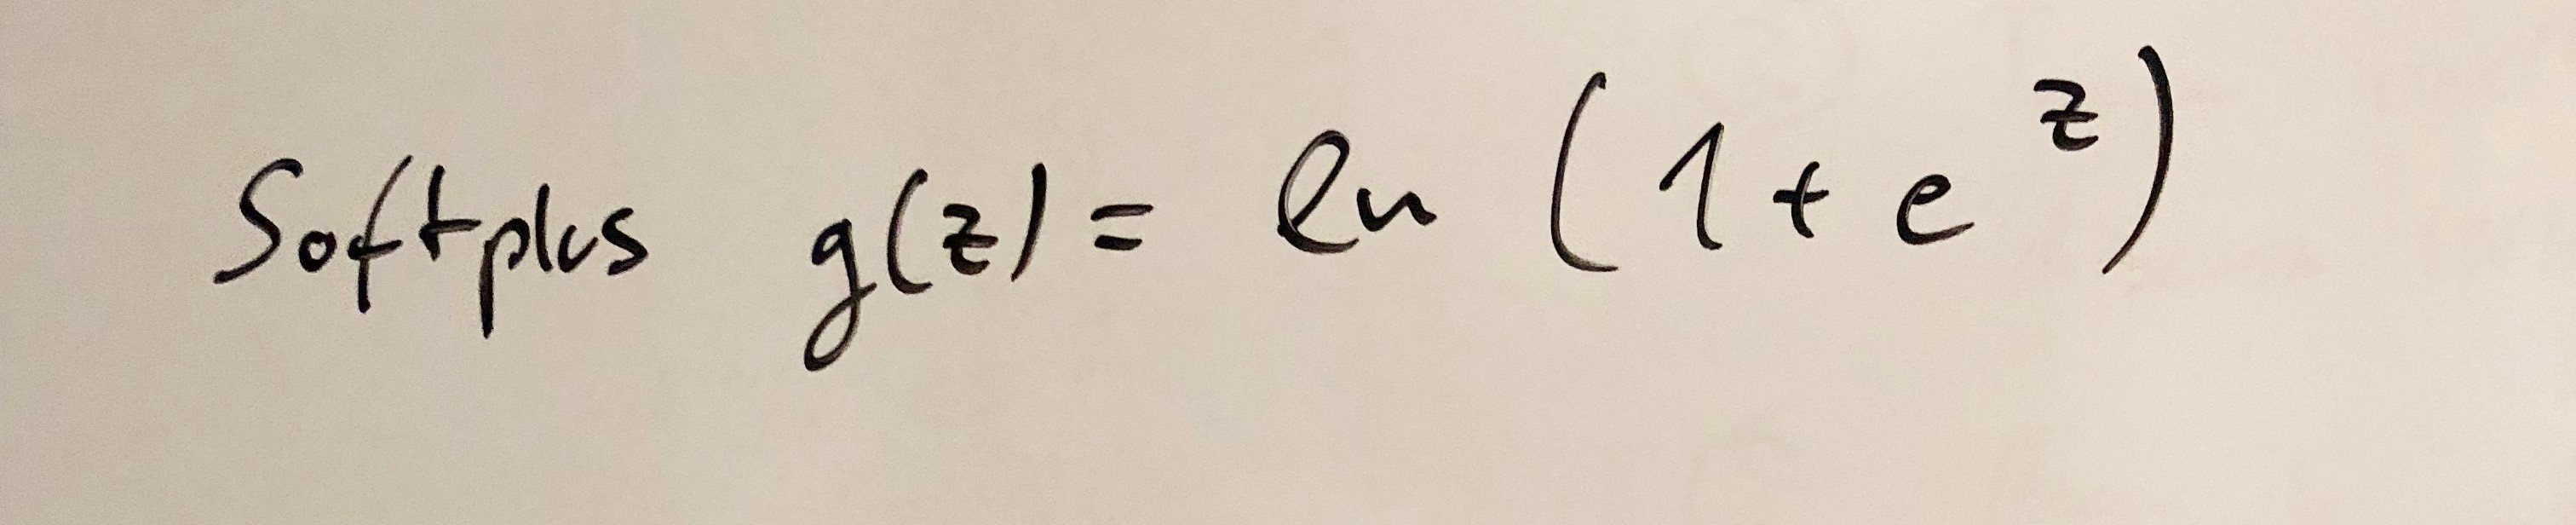 Softplus g(z) = ln (1 + e^z)